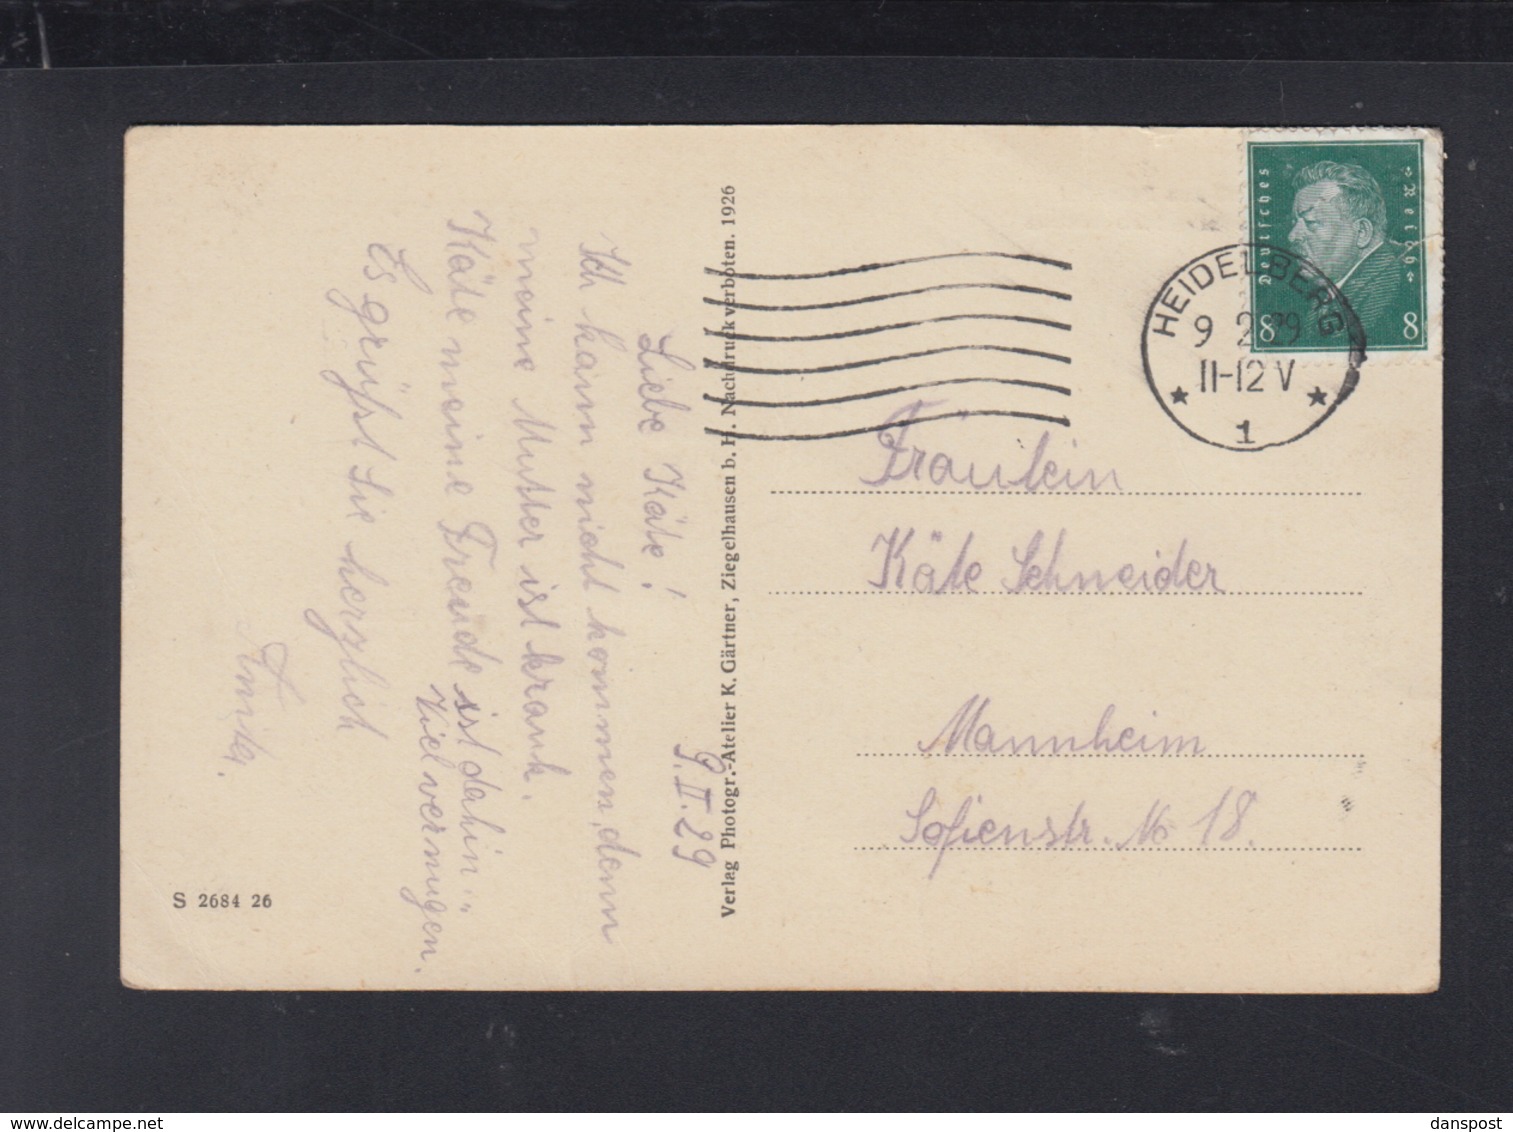 9.II.29
Liebe Käte!
Ich kann nicht kommen, denn
meine Mutter ist krank.
Käte meine Freude ist dahin.
Viel vernügen.
Es grüßt Sie herzlich
Verlag Photogr.-Atelier K. Gärtner, Ziegelhausen b. H. Nachdruck verboten. 1926
S 2684 26
Deutsches
Reich
8 8
HEIDELBERG
9 2 29
11-12 V
1
Fräulein
Käte Schneider
Mannheim
Sofienstr. No 18.
danspost